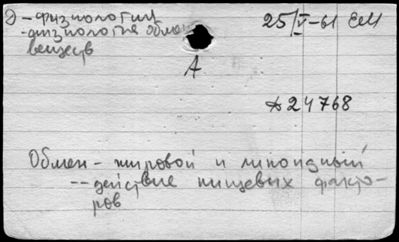 Э - физиология 25/I-61 ЕМ
- физиология обмен
веществ
А
24768
Обмен - жировой и липоидный
-- действие пищевых факто-
ров